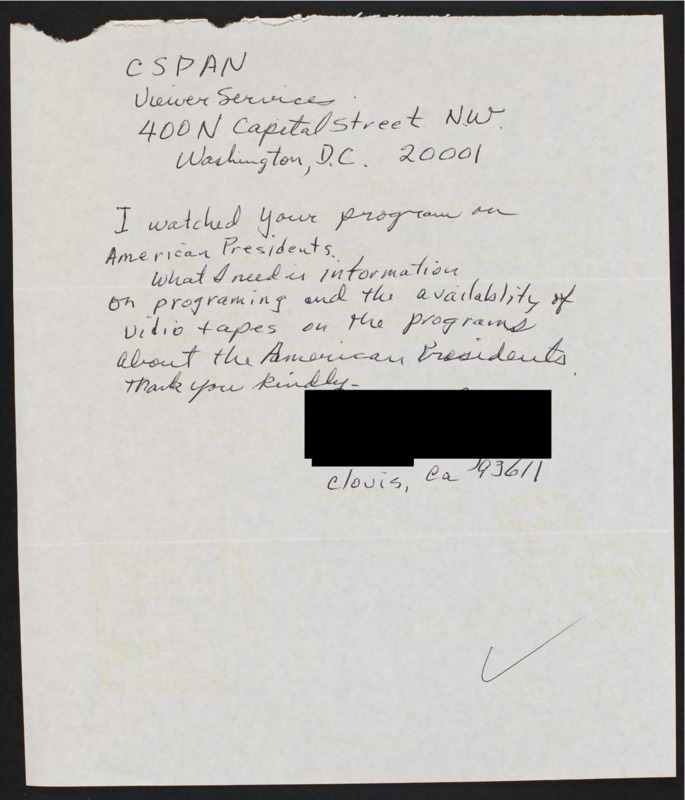 CSPAN
Viewer Services
400 N Capital Street N.W.
Washington, D.C. 20001
I watched your program on
American Presidents.
What I need is information
on programing and the availablity of
vidio tapes on the programs
about the American Presidents.
Thank you kindly-
Clovis, Ca 93611